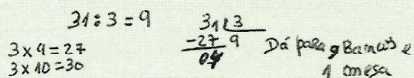 31 : 3 = 9
3 x 9 = 27
3 x 10 = 30
31 3
-27 9
04
Dá para 9 Bancos e
1 mesa